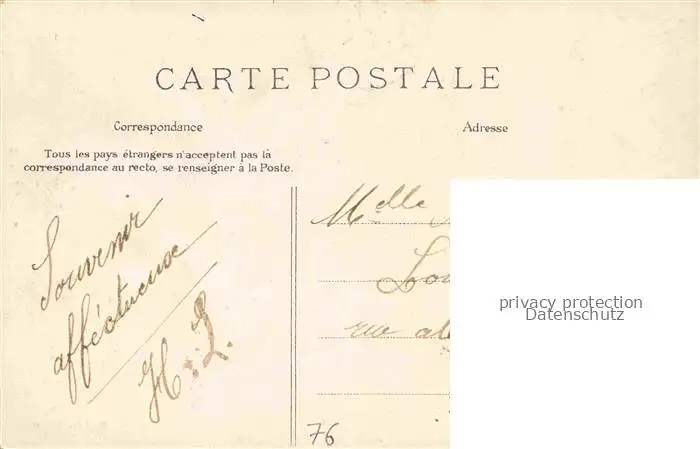 CARTE POSTALE
Correspondance
Adresse
Tous les pays étrangers n'acceptent pas la
correspondance au recto, se renseigner à la Poste.
Souvenir
afféctueuse
H. L.
Melle
rue
76
privacy protection
Datenschutz